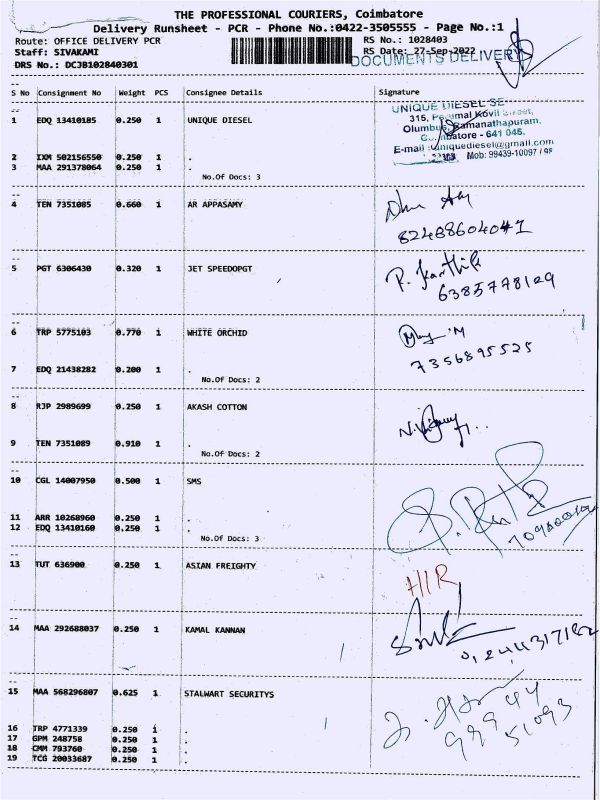 THE PROFESSIONAL COURIERS, Coimbatore
Delivery Runsheet - PCR - Phone No.:0422-3505555 - Page No.:1
Route: OFFICE DELIVERY PCR RS No.: 1028403
Staff: SIVAKAMI RS Date: 27-Sep-2022
DOCUMENTS DELIVERY
DRS No.: DCJB102840301
S No Consignment No Weight PCS Consignee Details Signature
1 EDQ 13410185 0.250 1 UNIQUE DIESEL
UNIQUE DIESEL SE
315, Perumal Kovil Street,
Olumbus, Ramanathapuram,
Coimbatore - 641 045.
E-mail :uniquediesel@gmail.com
Mob: 99439-10097 / 98
2 IXM 502156550 0.250 1 .
3 MAA 291378064 0.250 1 .
No.Of Docs: 3
4 TEN 7351085 0.660 1 AR APPASAMY
82488604041
5 PGT 6306430 0.320 1 JET SPEEDOPGT
R. Karthik
6385778129
6 TRP 5775103 0.770 1 WHITE ORCHID
7356895525
7 EDQ 21438282 0.200 1 .
No.Of Docs: 2
8 RJP 2989699 0.250 1 AKASH COTTON
9 TEN 7351089 0.910 1 .
No.Of Docs: 2
10 CGL 14007950 0.500 1 SMS
11 ARR 10268960 0.250 1 .
12 EDQ 13410160 0.250 1 .
No.Of Docs: 3
13 TUT 636900 0.250 1 ASIAN FREIGHTY
H/R
14 MAA 292688037 0.250 1 KAMAL KANNAN
15 MAA 568296807 0.625 1 STALWART SECURITYS
99944
51093
16 TRP 4771339 0.250 1 .
17 GPM 248758 0.250 1 .
18 CMM 793760 0.250 1 .
19 TCG 20033687 0.250 1 .